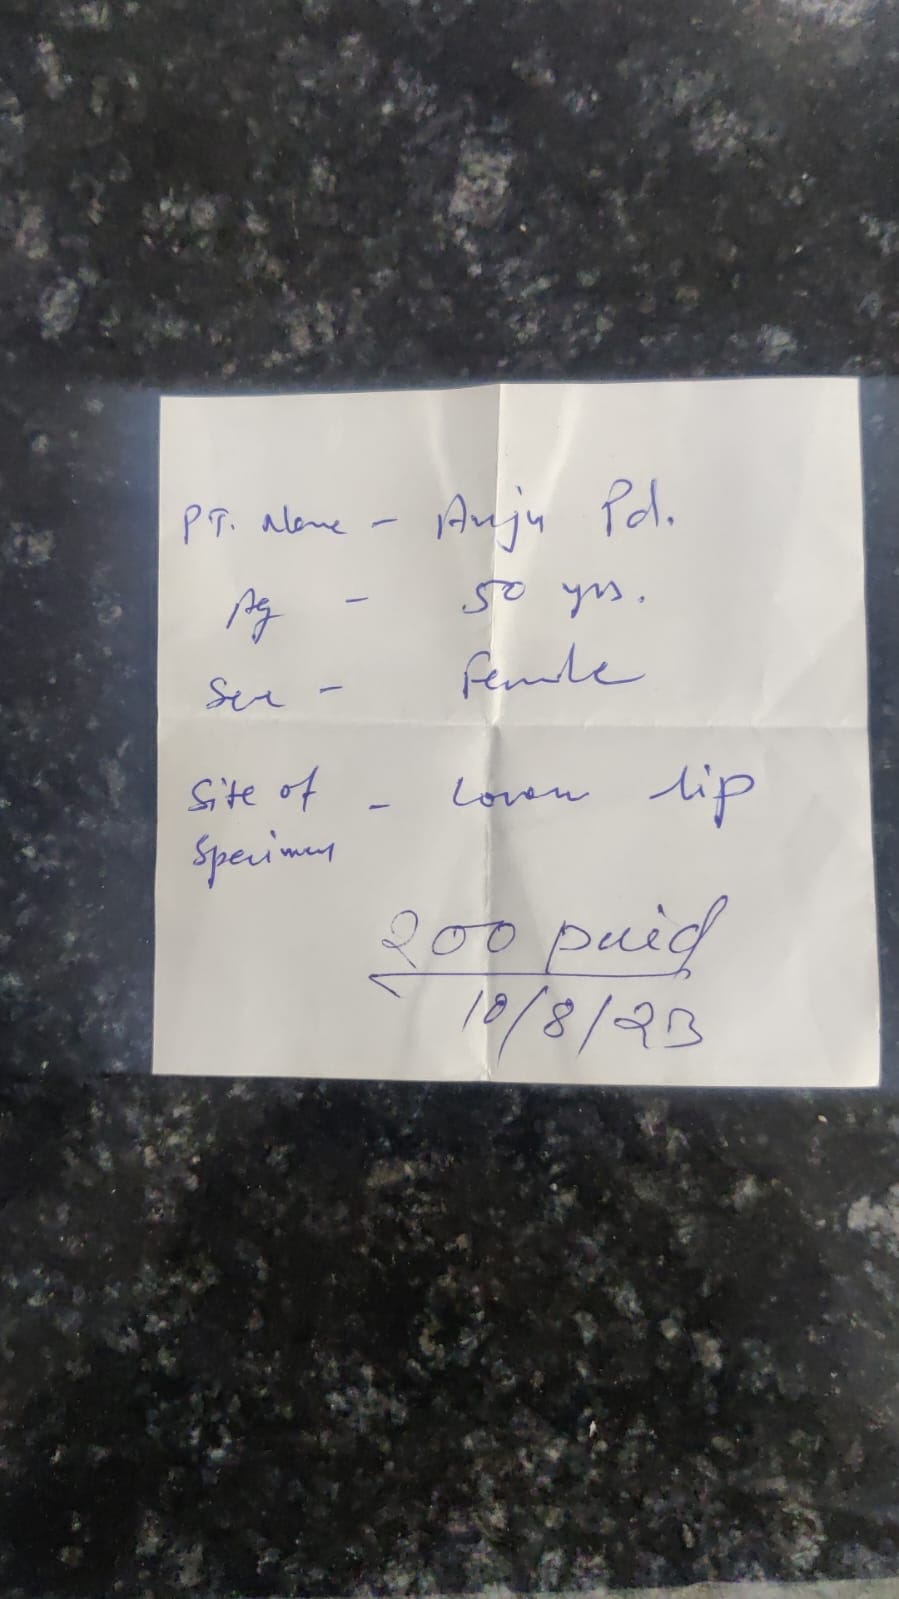 PT. Name - Anju Pd.
Age - 50 yrs.
Sex - Female
Site of - Lower lip
Specimen
200 paid
10/8/23